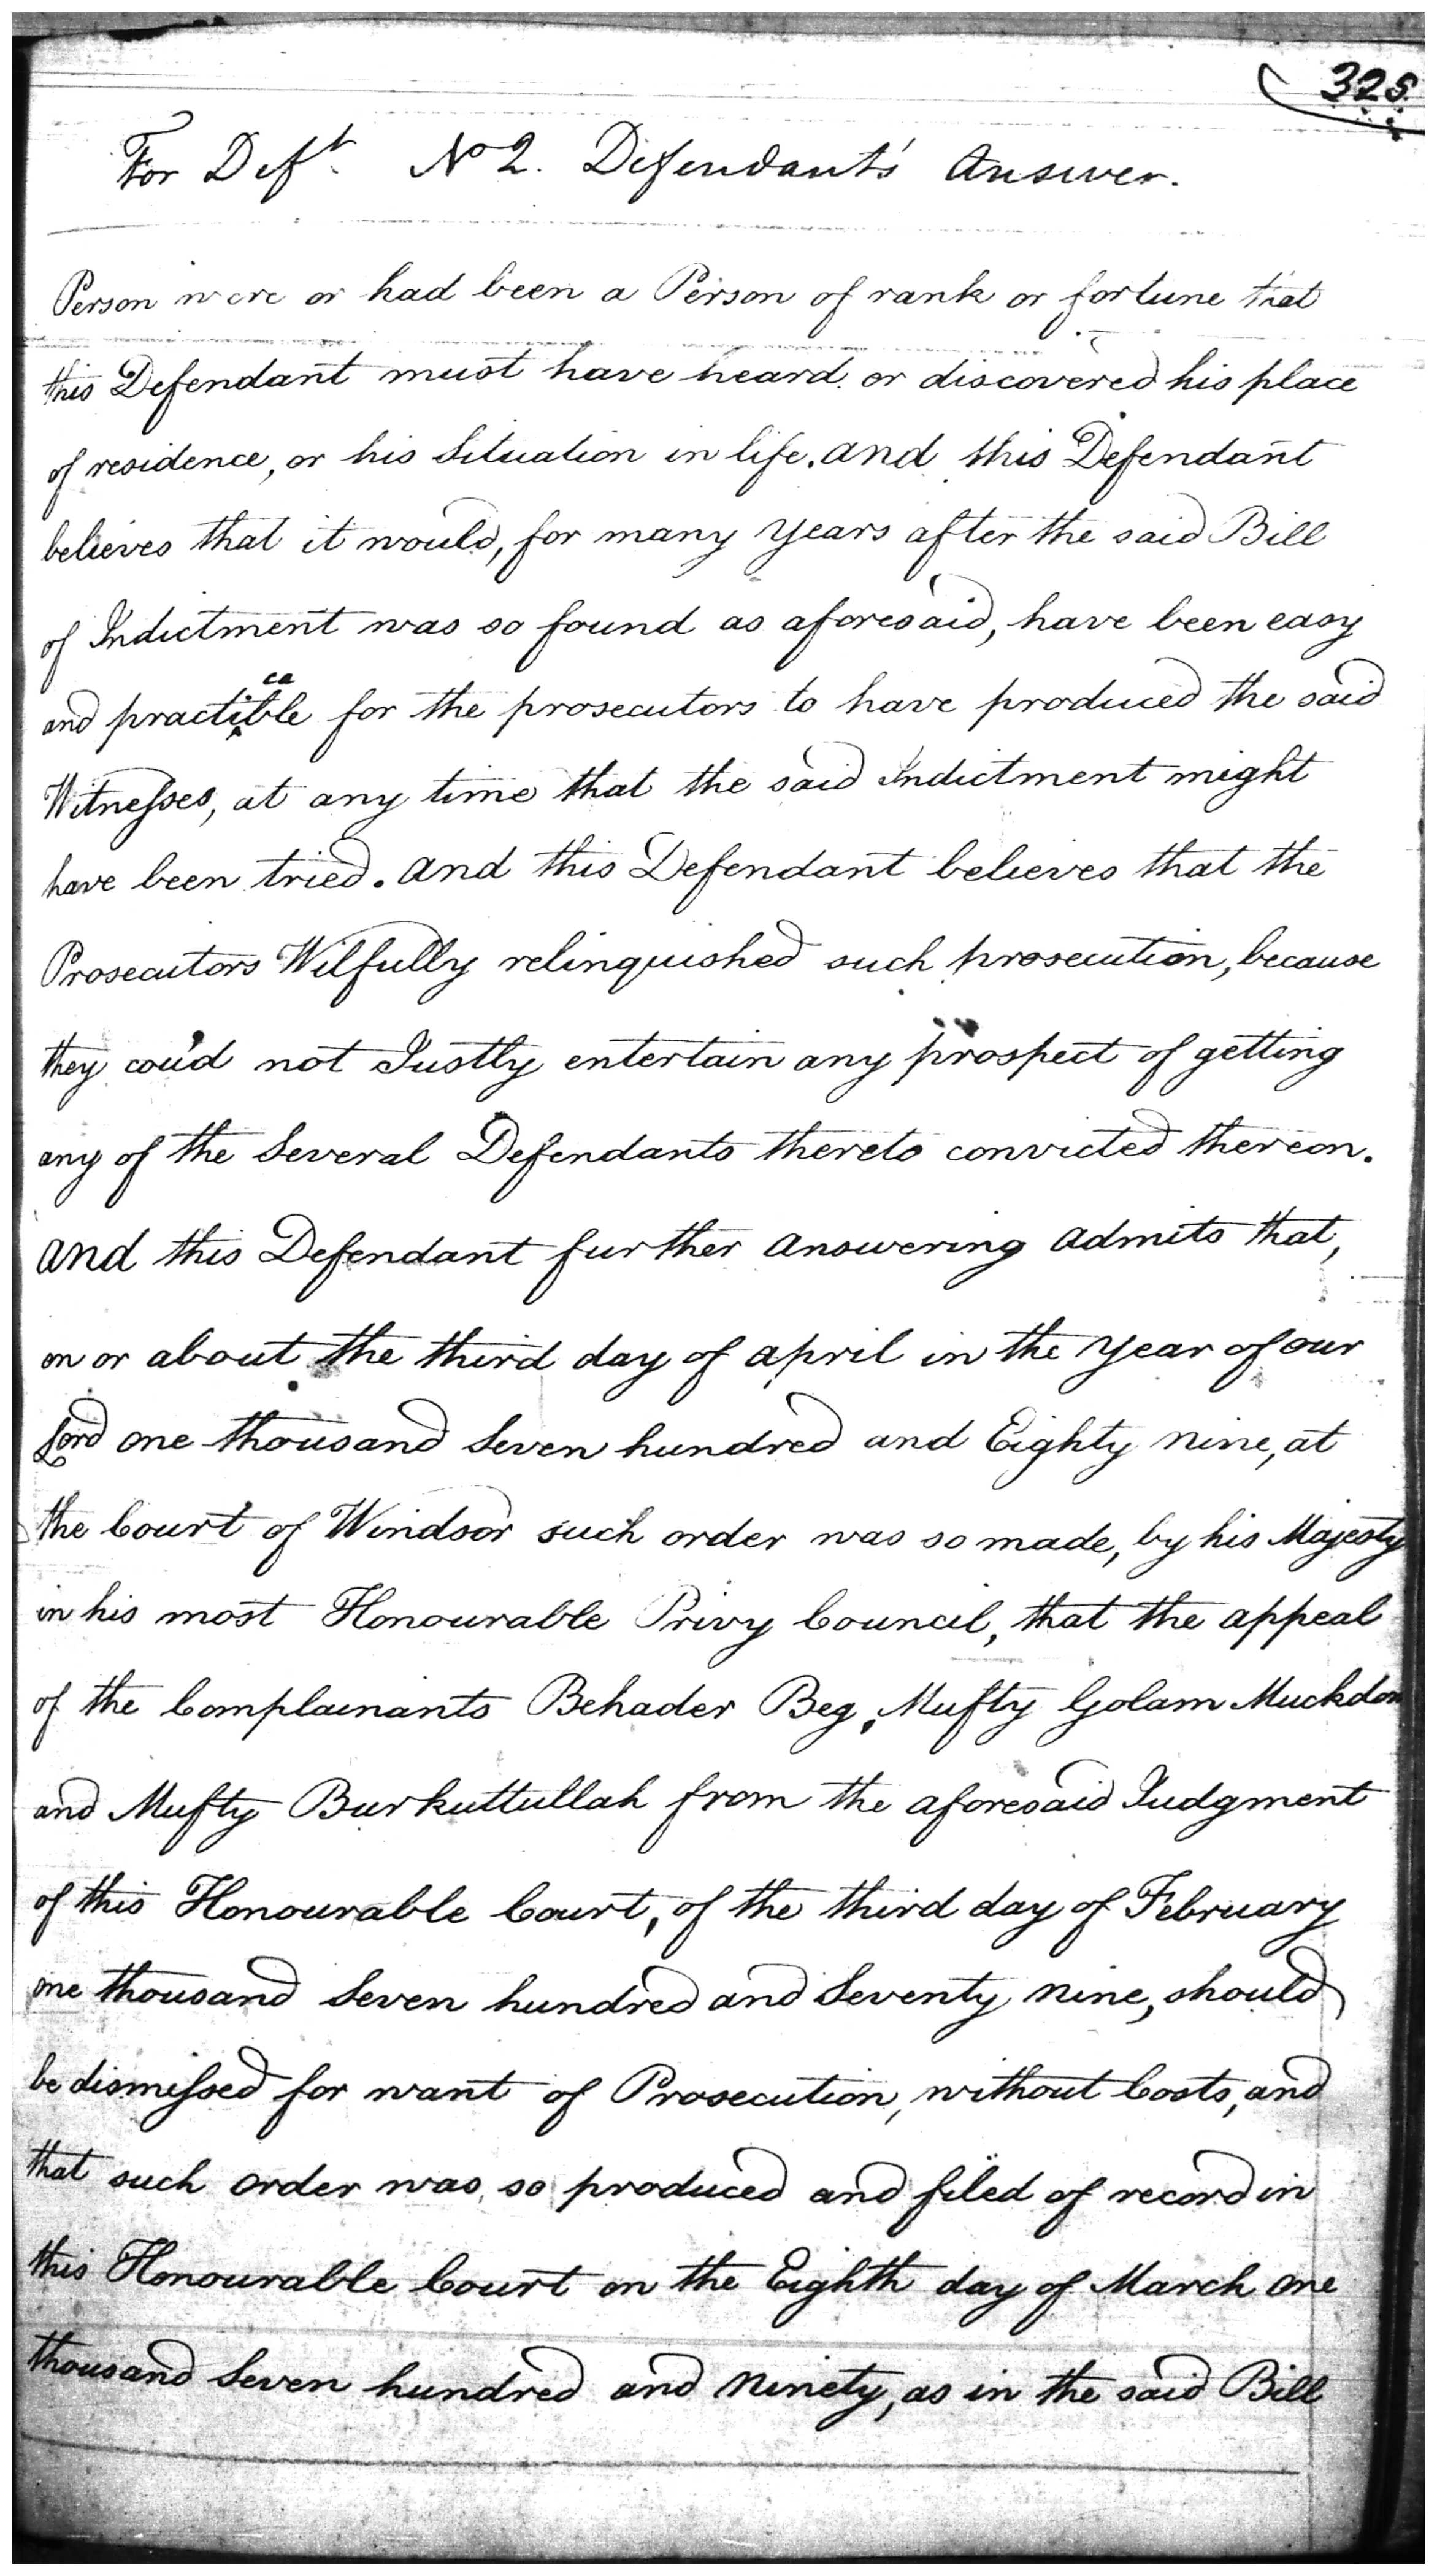 325.
For Deft. No 2. Defendant's Answer.
Person were or had been a Person of rank or fortune that
this Defendant must have heard or discovered his place
of residence, or his Situation in life. and this Defendant
believes that it would, for many years after the said Bill
of Indictment was so found as aforesaid, have been easy
and practicable for the prosecutors to have produced the said
Witnesses, at any time that the said Indictment might
have been tried. and this Defendant believes that the
Prosecutors Wilfully relinquished such prosecution, because
they cou'd not Justly entertain any prospect of getting
any of the Several Defendants thereto convicted thereon.
and this Defendant further answering admits that,
on or about the third day of april in the year of our
Lord one thousand Seven hundred and Eighty nine, at
the Court of Windsor such order was so made, by his Majesty
in his most Honourable Privy Council, that the appeal
of the Complainants Behader Beg, Mufty Golam Muckdom
and Mufty Burkuttullah from the aforesaid Judgment
of this Honourable Court, of the third day of February
one thousand Seven hundred and Seventy nine, should
be dismissed for want of Prosecution, without Costs, and
that such order was so produced and filed of record in
this Honourable Court on the Eighth day of March one
thousand Seven hundred and ninety, as in the said Bill